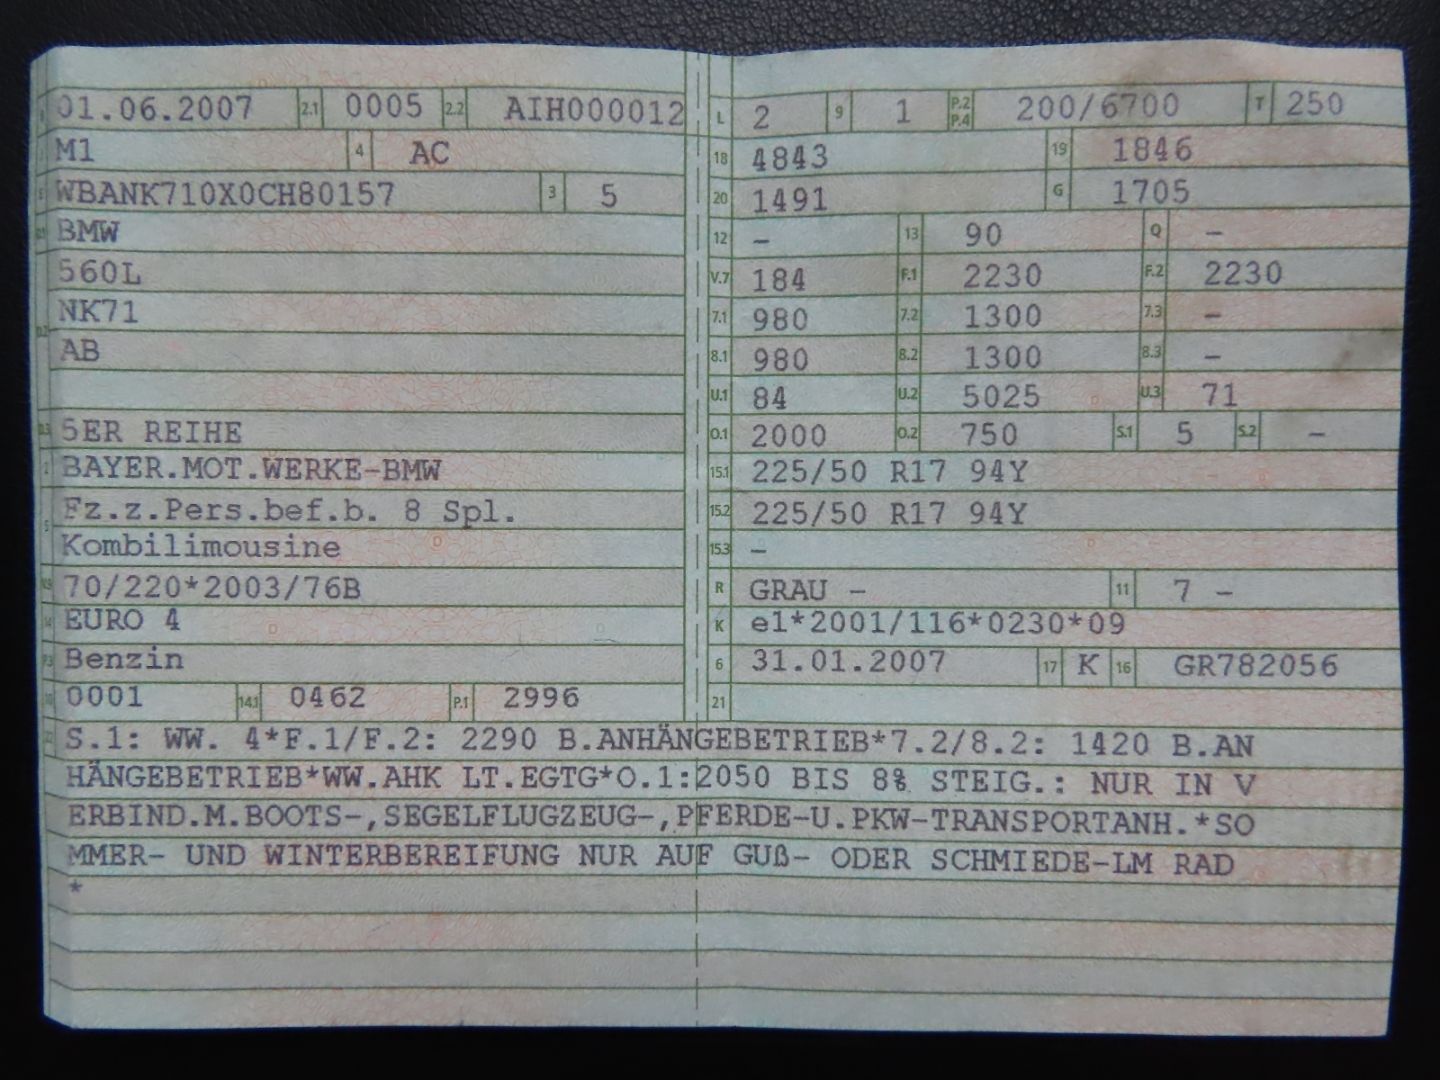 01.06.2007 2.1 0005 2.2 AIH000012
M1 4 AC
WBANK710X0CH80157 3 5
BMW
560L
NK71
AB
5ER REIHE
BAYER.MOT.WERKE-BMW
Fz.z.Pers.bef.b. 8 Spl.
Kombilimousine
70/220*2003/76B
EURO 4
Benzin
0001 14.1 0462 P.1 2996
L 2 9 1 P.2 P.4 200/6700 T 250
18 4843 19 1846
20 1491 G 1705
12 – 13 90 Q –
V.7 184 F.1 2230 F.2 2230
7.1 980 7.2 1300 7.3 –
8.1 980 8.2 1300 8.3 –
U.1 84 U.2 5025 U.3 71
O.1 2000 O.2 750 S.1 5 S.2 –
15.1 225/50 R17 94Y
15.2 225/50 R17 94Y
15.3 –
R GRAU – 11 7 –
K e1*2001/116*0230*09
6 31.01.2007 17 K 16 GR782056
21
S.1: WW. 4*F.1/F.2: 2290 B.ANHÄNGEBETRIEB*7.2/8.2: 1420 B.AN
HÄNGEBETRIEB*WW.AHK LT.EGTG*O.1:2050 BIS 8% STEIG.: NUR IN V
ERBIND.M.BOOTS-,SEGELFLUGZEUG-,PFERDE-U.PKW-TRANSPORTANH.*SO
MMER- UND WINTERBEREIFUNG NUR AUF GUß- ODER SCHMIEDE-LM RAD
*